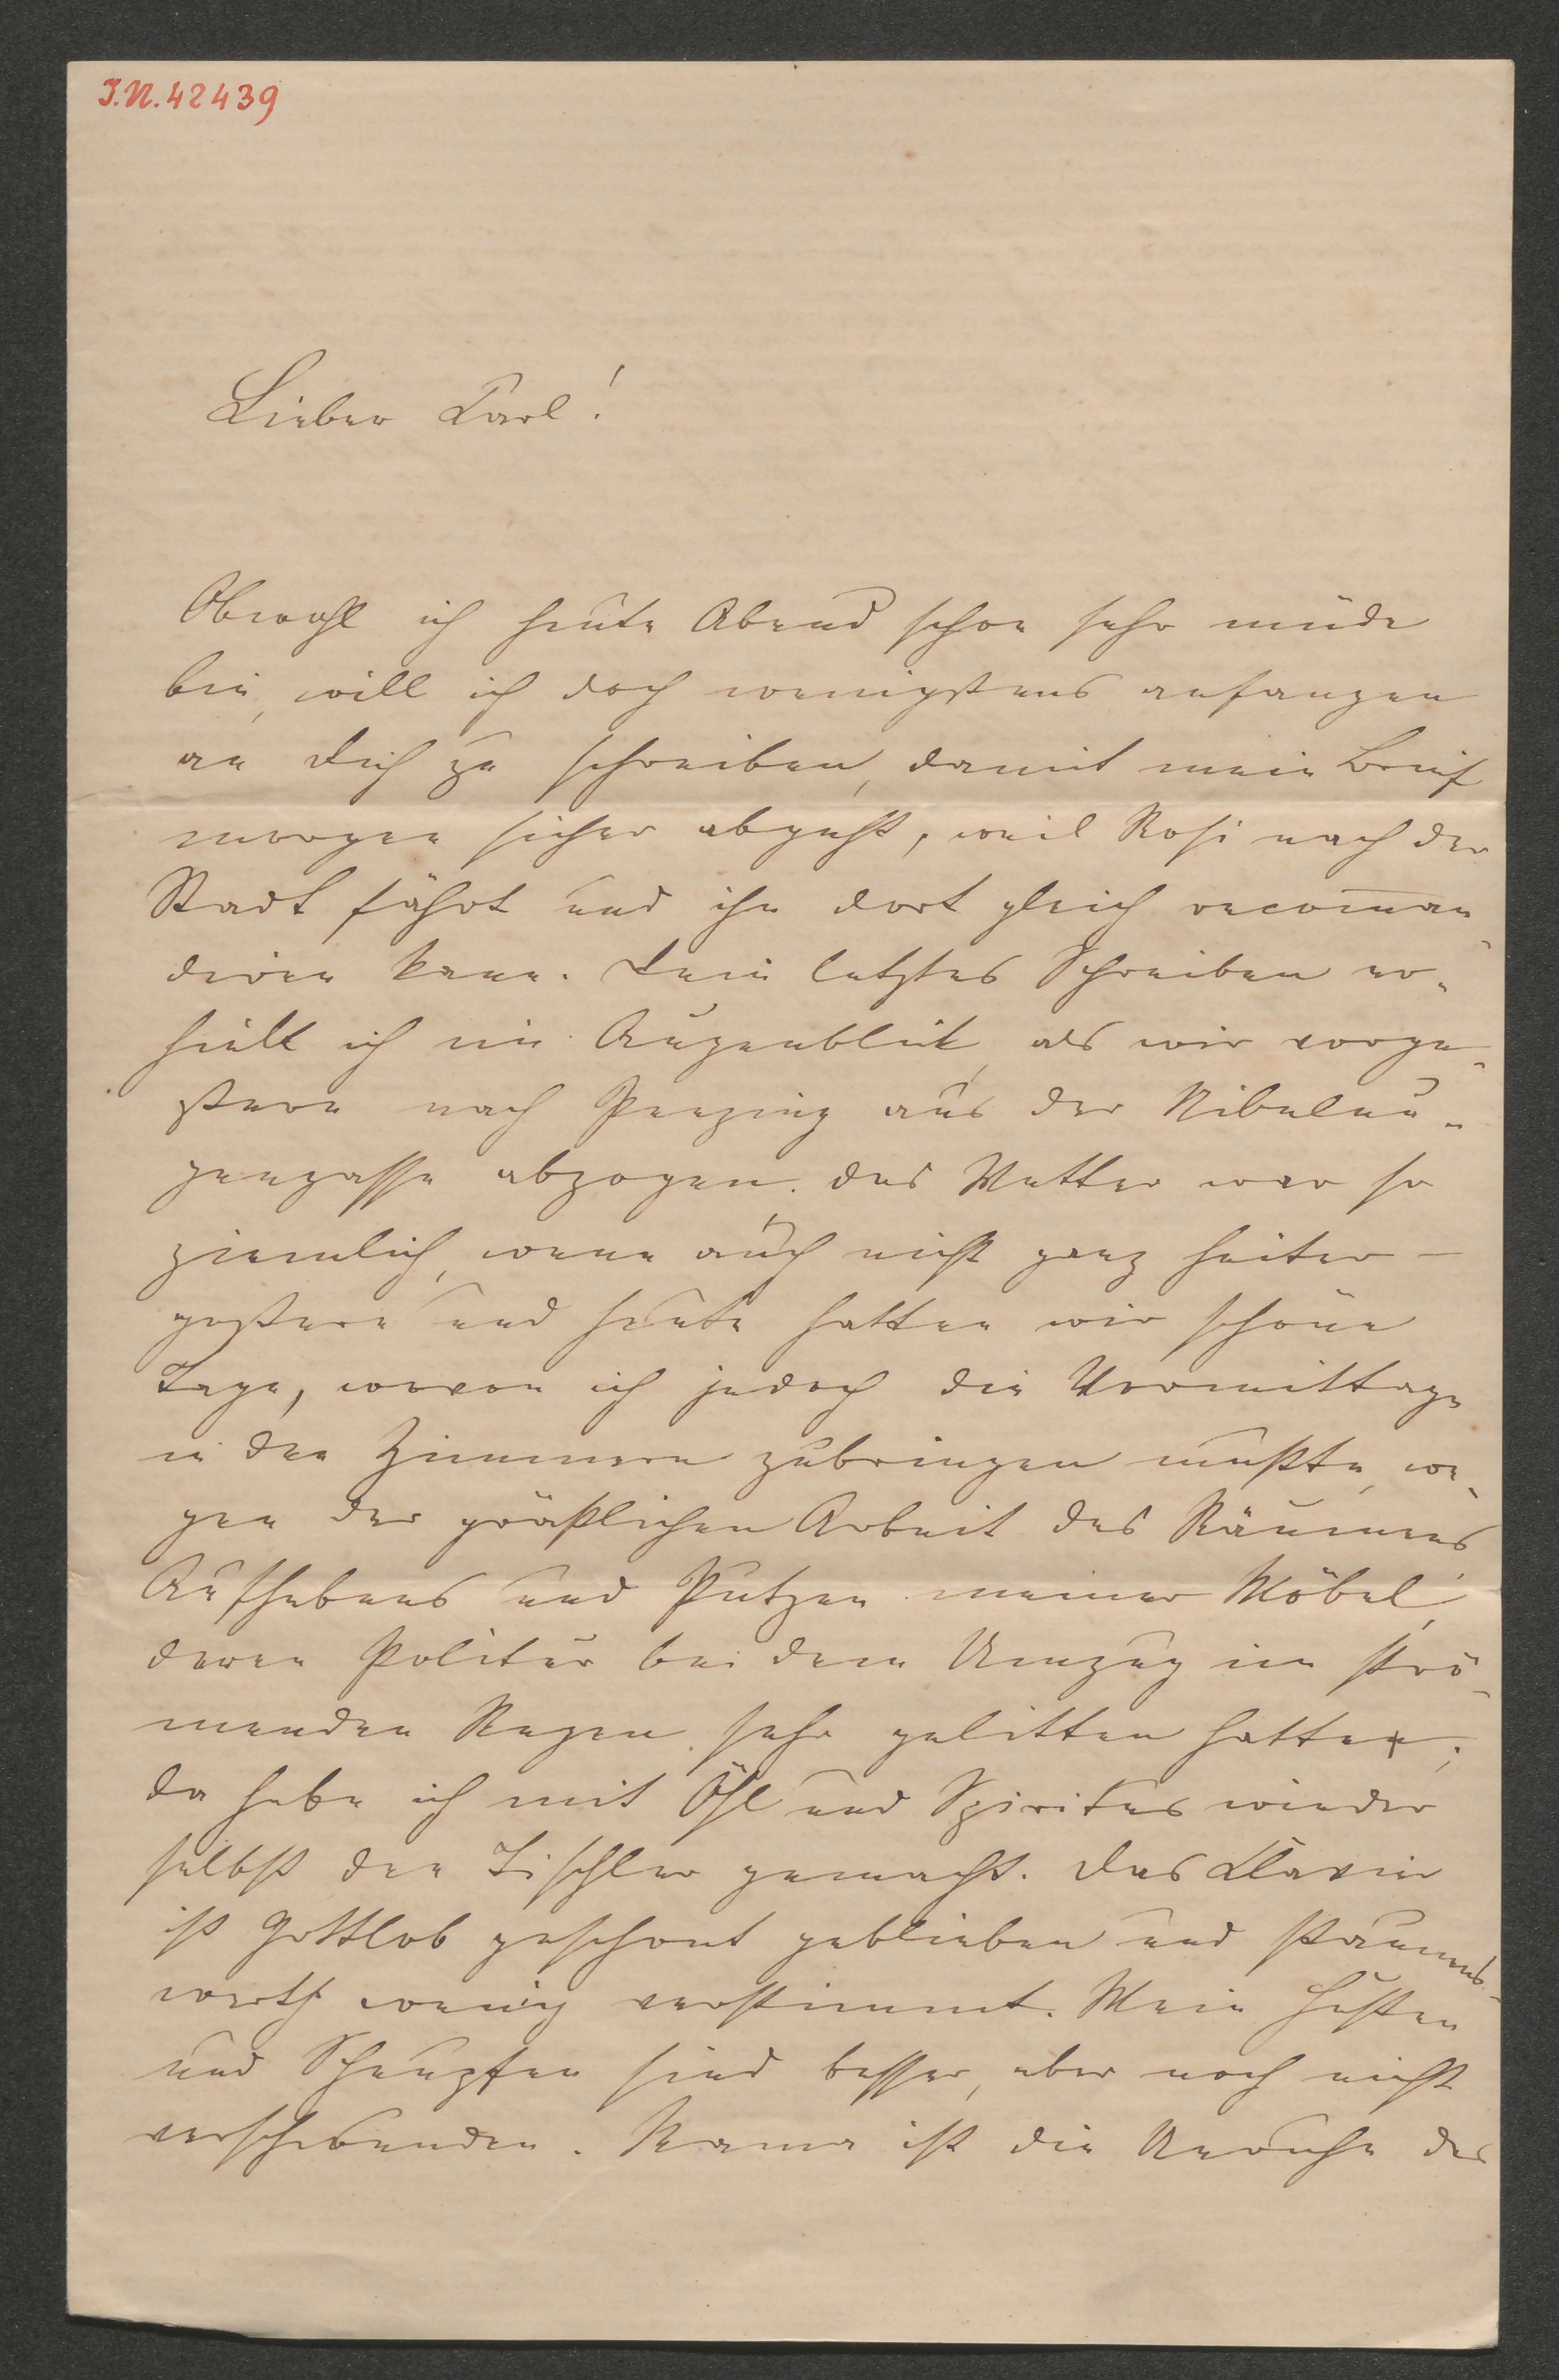 I.N. 42439
Lieber Carl!
Obwohl ich heute Abend schon sehr müde
bin, will ich doch wenigstens anfangen
an Dich zu schreiben, damit mein Brief
morgen sicher abgeht, weil Rosi nach der
Stadt fährt und ihn dort gleich recom̅an-
diren kann. Dein letztes Schreiben er-
hielt ich im Augenblick, als wir vorge-
stern nach Penzing aus der Nibelun-
gengasse abzogen. Das Wetter war so
ziemlich, wenn auch nicht ganz heiter –
gestern und heute hatten wir schöne
Tage, wovon ich jedoch die Vormittage
in den Zimmern zubringen mußte, we-
gen der gräßlichen Arbeit des Räumens
Aufhebens und Putzen meiner Möbel,
deren Politur bei dem Umzug im strö-
menden Regen sehr gelitten hatte;
da habe ich mit Öhl und Spiritus wieder
selbst den Tischler gemacht. Das Klavier
ist Gottlob geschont geblieben und staunens-
werth wenig verstimmt. Mein Husten
und Schnupfen sind besser, aber noch nicht
verschwunden. Kaum ist die Unruhe des